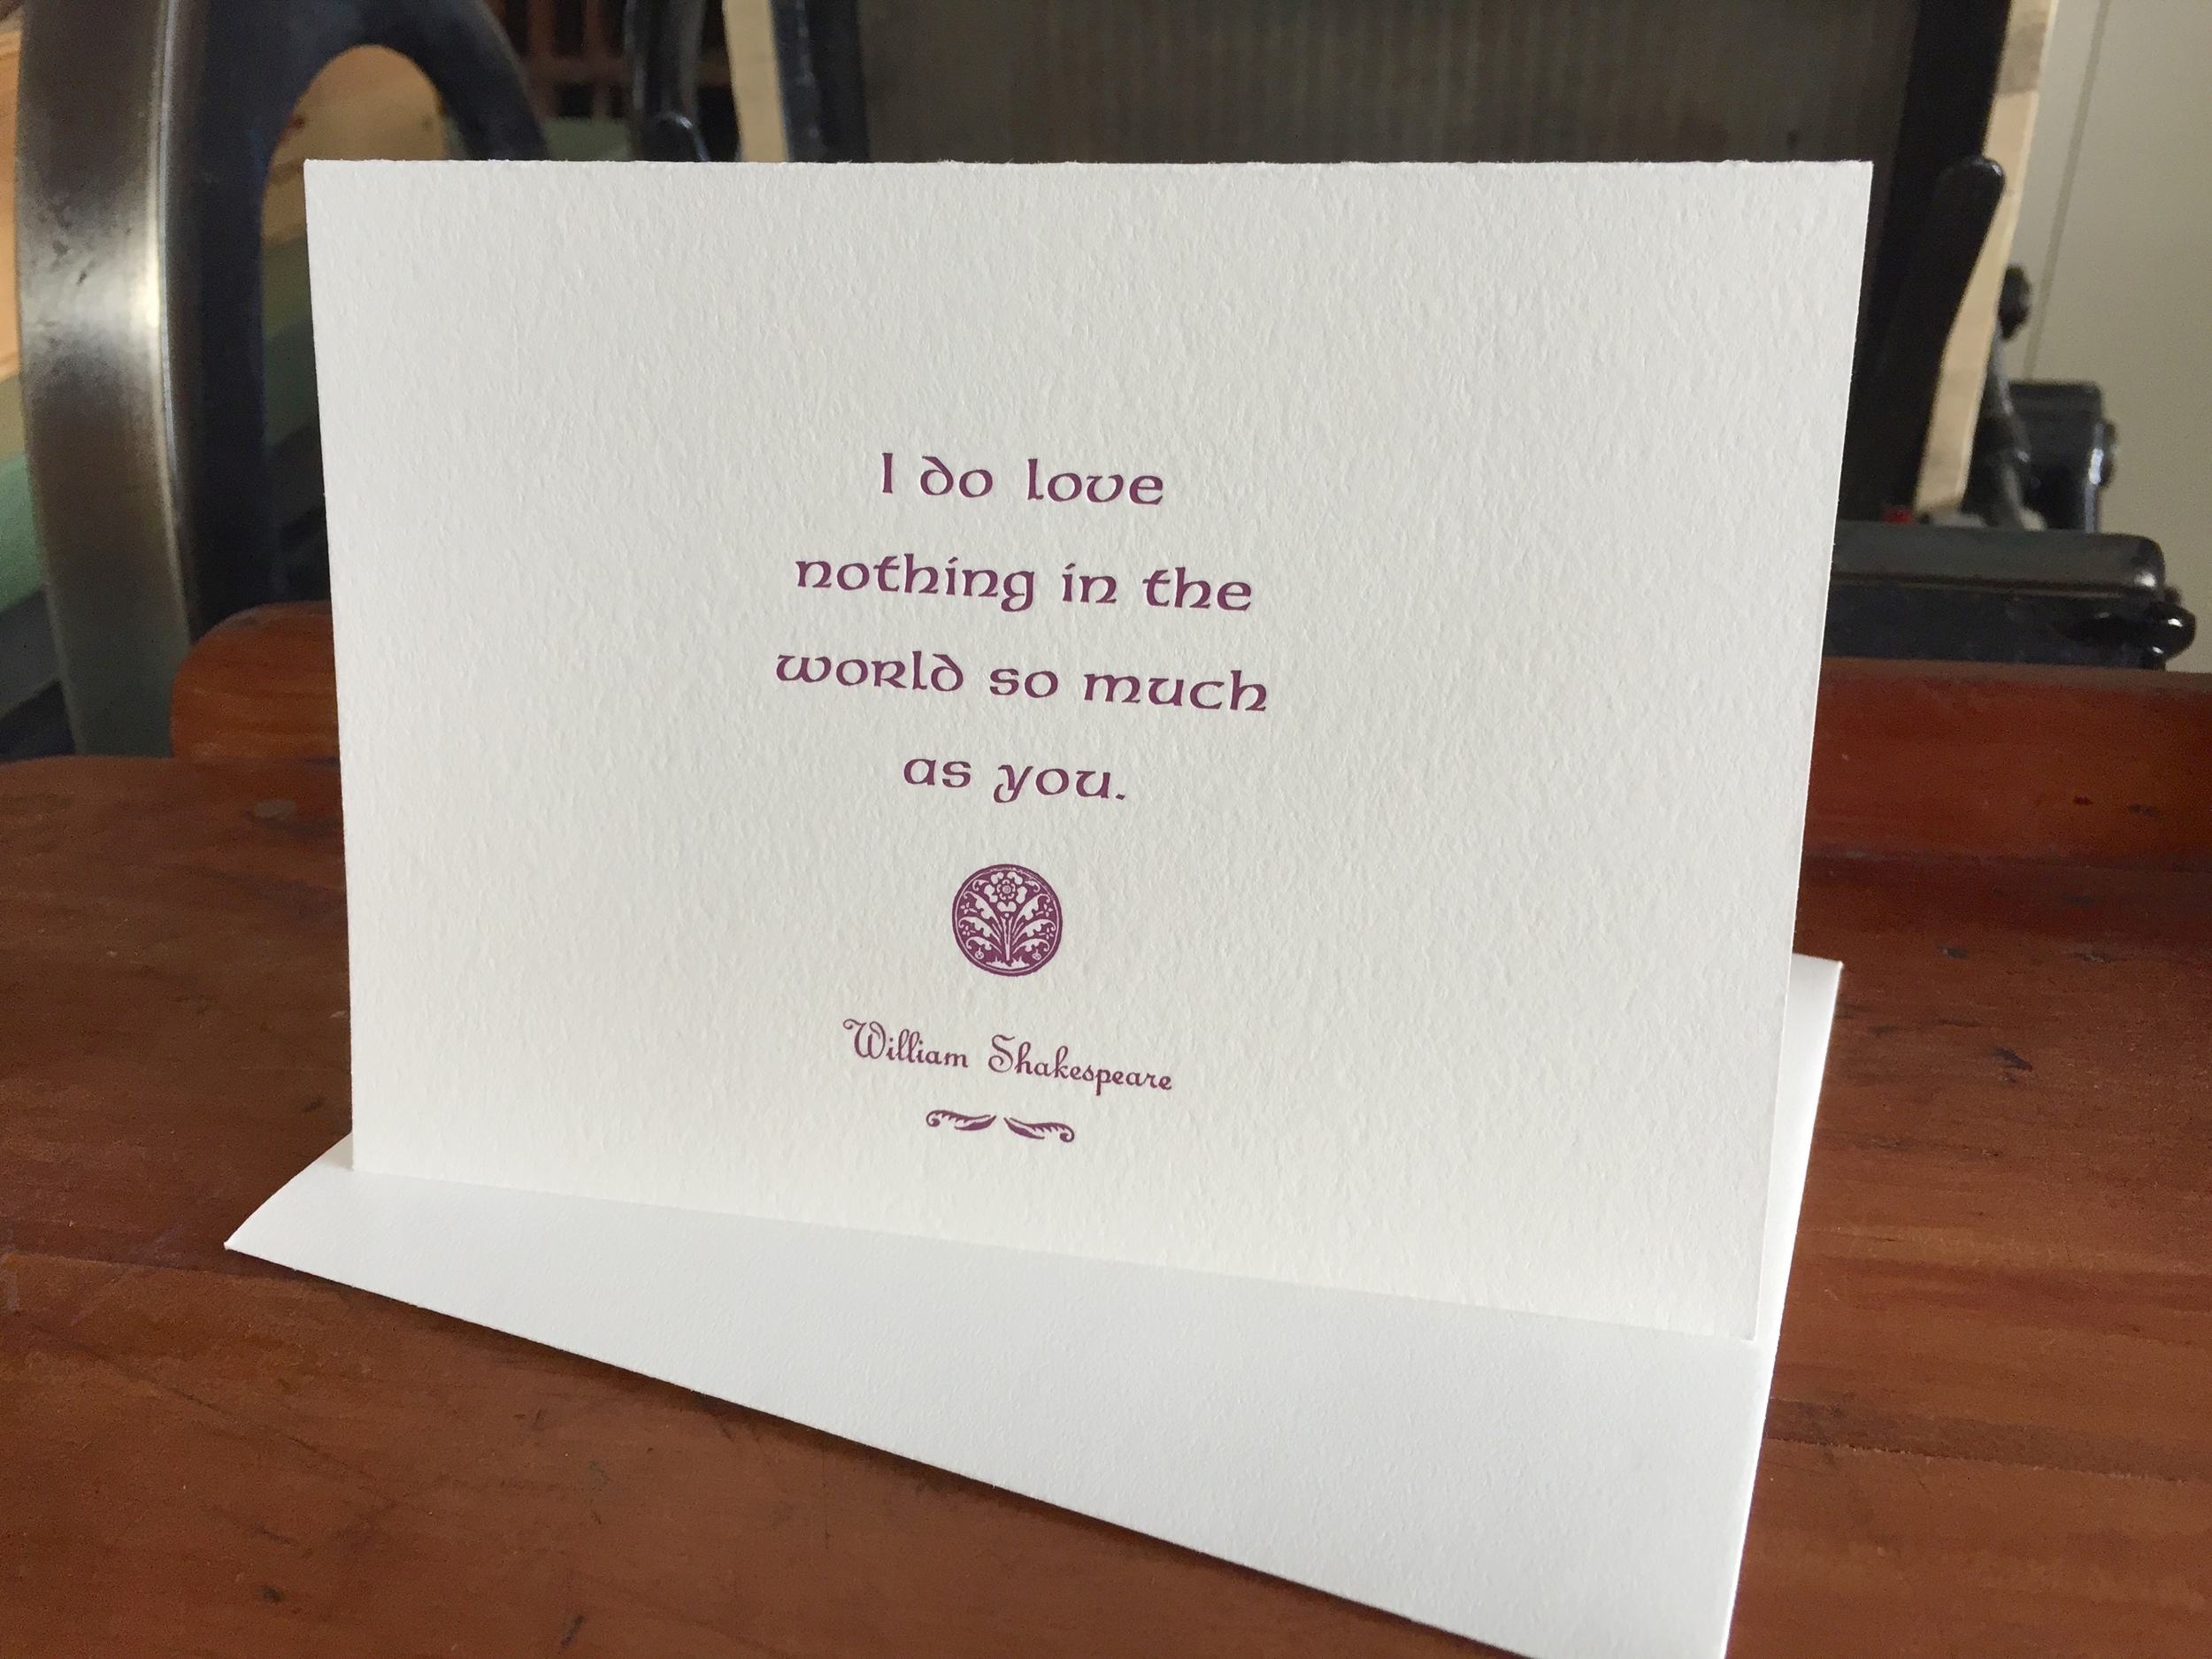 I do love
nothing in the
world so much
as you.
William Shakespeare